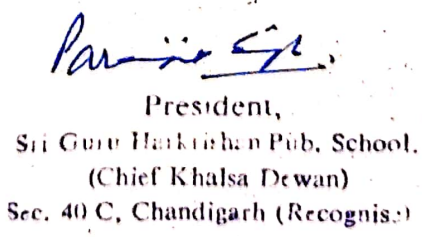 President,
Sri Guru Harkrishan Pub. School.
(Chief Khalsa Dewan)
Sec. 40 C, Chandigarh (Recognis.)